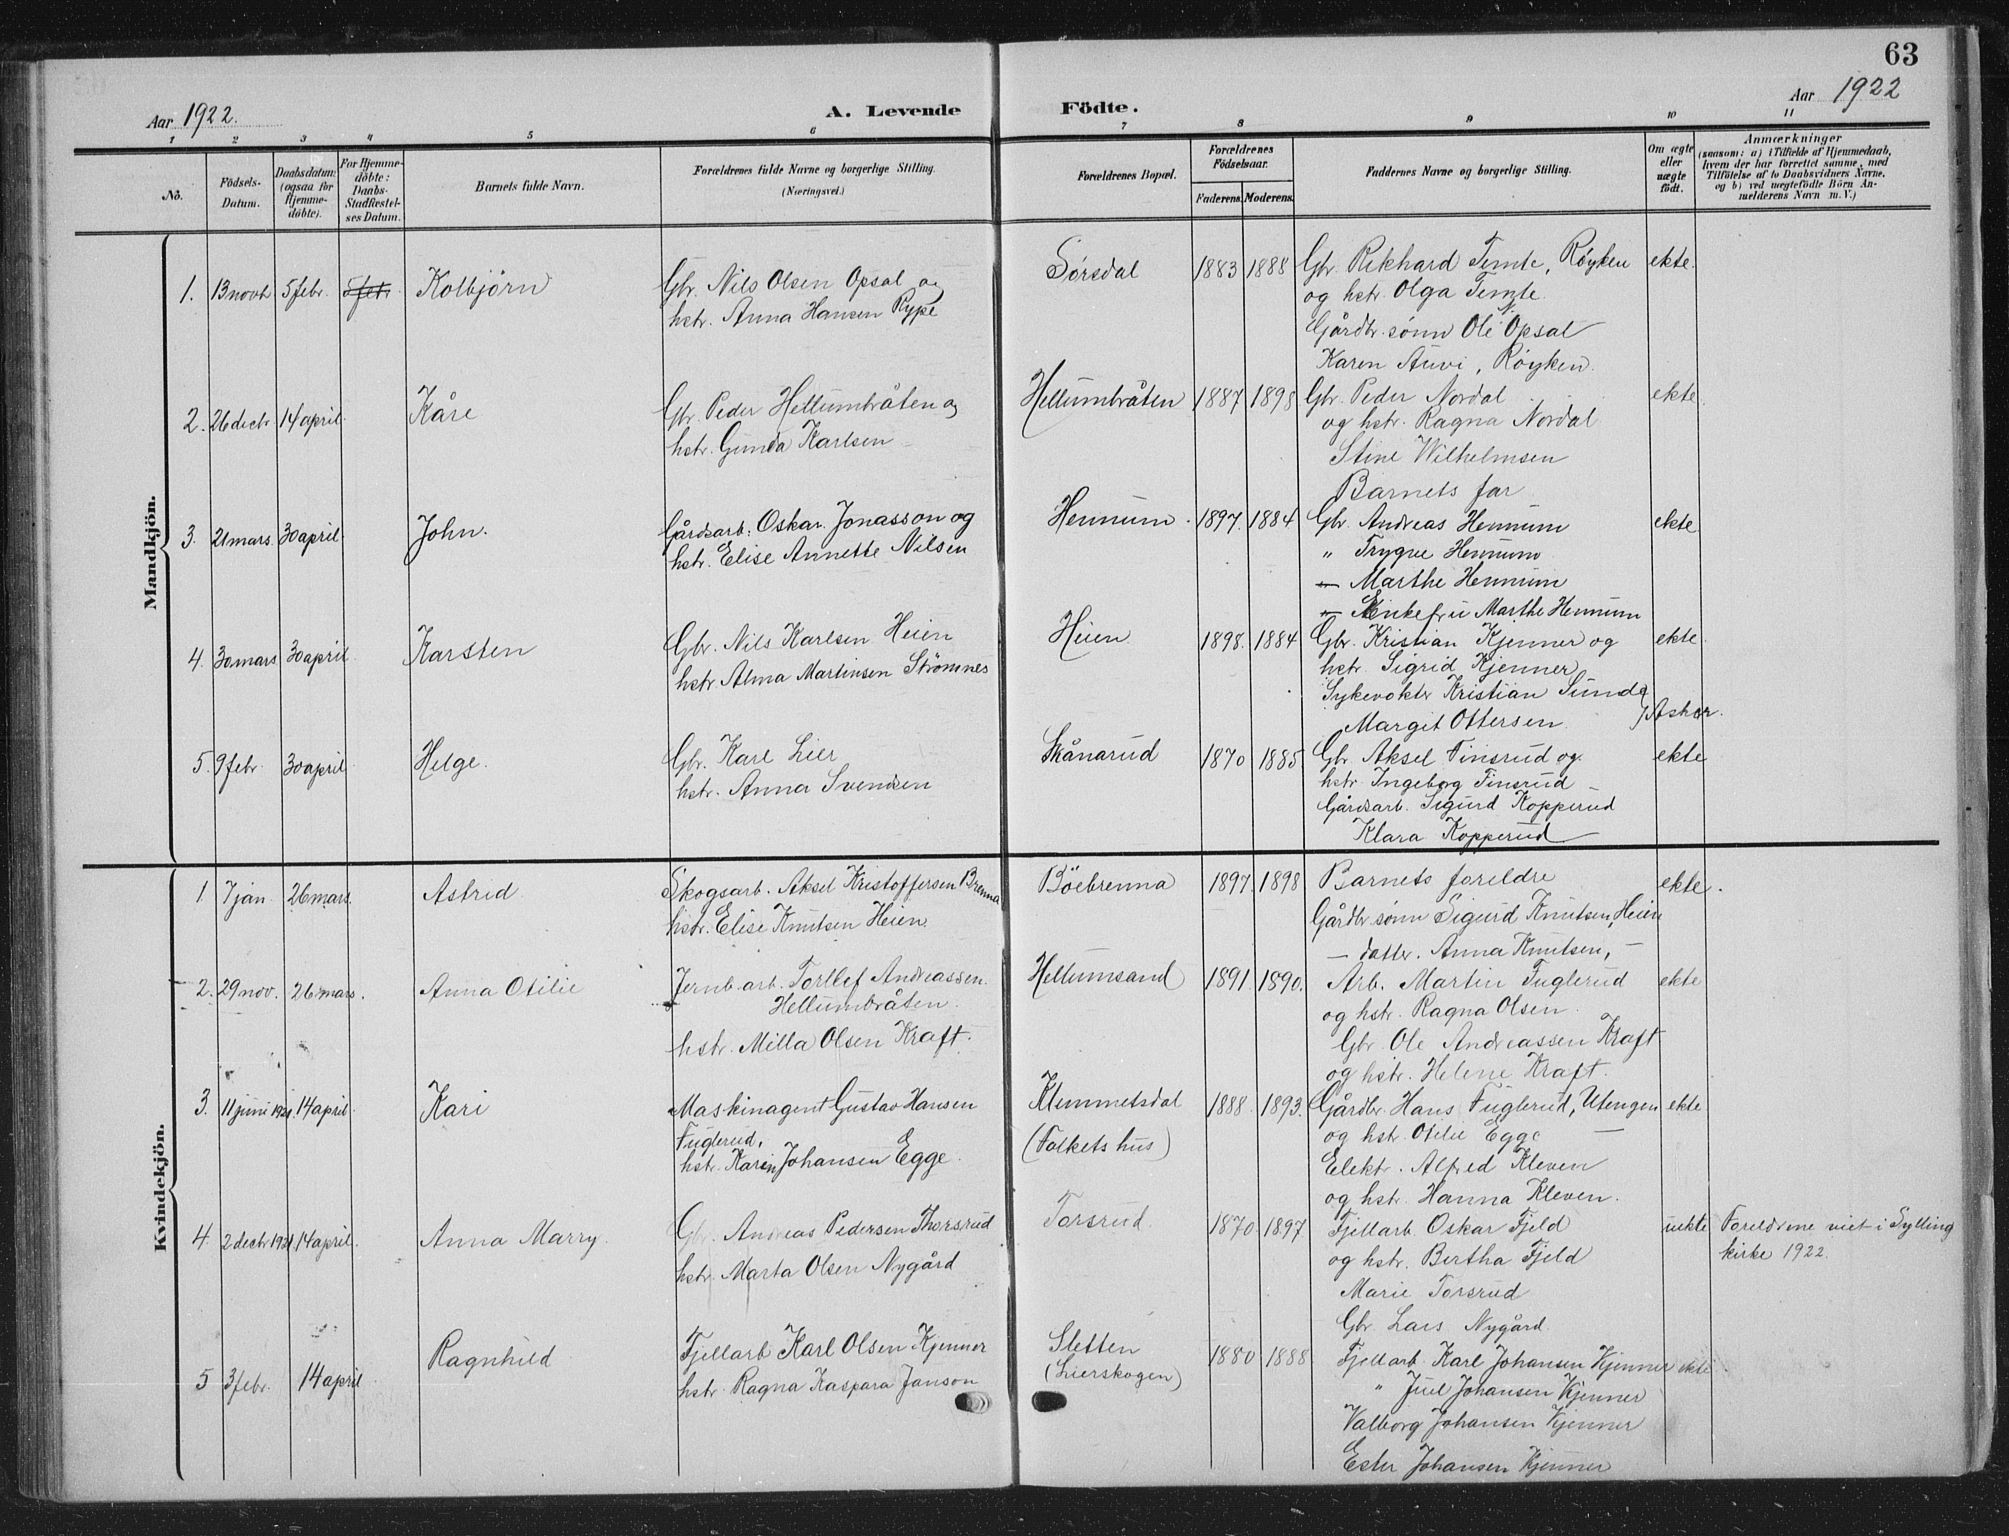 63
Aar 1922.
A. Levende Födte.
Aar 1922
1 2 3 4 5 6 7 8 9 10 11
No.
Födsels-
Datum.
Daabsdatum:
(ogsaa for
Hjemme-
döbte).
For Hjemme-
döbte:
Daabs-
Stadfæstel-
ses Datum.
Barnets fulde Navn.
Forældrenes fulde Navne og borgerlige Stilling.
(Næringsvei.)
Forældrenes Bopæl.
Forældrenes
Födselsaar.
Faderens. Moderens.
Faddernes Navne og borgerlige Stilling.
Om ægte
eller
uægte
født.
Anmærkninger
(saasom: a) i Tilfælde af Hjemmedaab,
hvem der har forrettet samme, med
Tilföielse af to Daabsvidners Navne,
og b) ved uægtefödte Börn An-
melderens Navn m. V.)
Mandkjön.
1. 13 novb. 5 febr. 5 febr. Kolbjörn
Gbr. Nils Olsen Opsal og
hstr. Anna Hansen Rype
Sørsdal 1883 1888
Gbr. Rikhard Temte, Røyken
og hstr. Olga Temte
Gårdbr.sønn Ole Opsal
Karen Auvi, Røyken.
ekte.
2. 26 decbr. 14 april. Kåre
Gbr. Peder Hellumbråten og
hstr. Gunda Karlsen
Hellumbråten 1887 1898
Gbr. Peder Nordal
og hstr. Ragna Nordal
Stine Wilhelmsen
Barnets far
ekte
3. 21 mars. 30 april. John.
Gårdsarb. Oskar Jonasson og
hstr. Elise Annette Nilsen
Hennum. 1897. 1884
Gbr. Andreas Hennum
" Trygve Hennum
— Marthe Hennum
— Enkefru Marthe Hennum
ekte
4. 30 mars 30 april. Karsten
Gbr. Nils Karlsen Heien
hstr. Alma Martinsen Strömnes
Heien 1898. 1884
Gbr. Kristian Kjenner og
hstr. Sigrid Kjenner
Sykevokter Kristian Sunde
Margit Ottersen / Asker.
ekte.
5. 9 febr. 30 april. Helge.
Gbr. Karl Lier
hstr. Anna Svendsen
Skånarud 1870 1885
Gbr. Aksel Tinsrud og
hstr. Ingeborg Tinsrud
Gårdsarb. Sigurd Kopperud
Klara Kopperud
ekte
Kvindekjön.
1 7 jan. 26 mars. Astrid
Skogsarb. Aksel Kristoffersen Brenna
hstr. Elise Knutsen Heien.
Böebrenna 1897. 1898
Barnets foreldre
Gårdbr.sønn Sigurd Knutsen, Heien
— datter. Anna Knutsen, —
ekte.
2. 29 nov. 26 mars. Anna Otilie
Jernb.arb. Torllef Andreassen
Hellumbråten.
hstr. Milla Olsen Kraft.
Hellumsand 1891. 1890.
Arb. Martin Fuglerud
og hstr. Ragna Olsen.
Gbr. Ole Andreassen Kraft
og hstr. Helene Kraft.
ekte
3. 11 juni 1921. 14 april. Kari
Maskinagent Gustav Hansen
Fuglerud,
hstr. Karin Johansen Egge.
Klemmetsdal
(Folkets hus)
1888. 1893.
Gårdbr. Hans Fuglerud, Utengen
og hstr. Otilie Egge —
Elektr. Alfred Kleven
og hstr. Hanna Kleven.
ekte
4. 2 decbr 1921 14 april. Anna Marry.
Gbr. Andreas Pedersen Thorsrud
hstr. Marta Olsen Nygård
Torsrud. 1870 1897
Fjellarb. Oskar Fjeld
og hstr. Bertha Fjeld
Marie Torsrud
Gbr. Lars Nygård.
uekte
Foreldrene viet i Sylling
kirke 1922.
5 3 febr. 14 april Ragnhild
Fjellarb Karl Olsen Kjenner
hstr. Ragna Kaspara Janson
Sletten
(Lierskogen)
1880 1888
Fjellarb. Karl Johansen Kjenner
" Juel Johansen Kjenner
Valborg Johansen Kjenner
Ester Johansen Kjenner
ekte